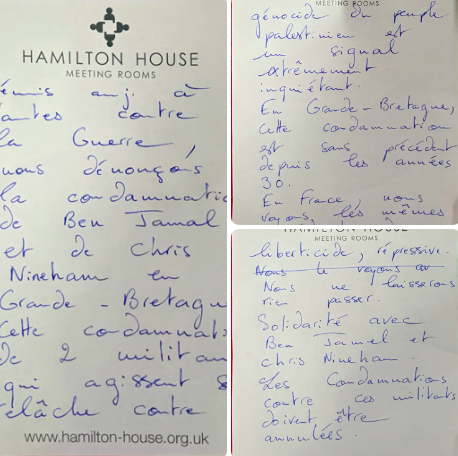 HAMILTON HOUSE
MEETING ROOMS
émis auj. à
antes contre
la Guerre,
nous dénonçons
la condamnatio
de Ben Jamal
et de Chris
Nineham en
Grande-Bretagne
Cette condamnat
de 2 militan
qui agissent s
relâche contre
www.hamilton-house.org.uk
génocide du peuple
palestinien est
un signal
extrêmement
inquiétant.
En Grande-Bretagne,
cette condamnation
est sans précédent
depuis les années
30.
En France nous
voyons, les mêmes
HAMILTON HOUSE
MEETING ROOMS
liberticide, répressive.
Nous le voyons av
Nous ne laisserons
rien passer.
Solidarité avec
Ben Jamel et
Chris Nineham.
Les Condamnations
contre ces militants
doivent être
annulées.